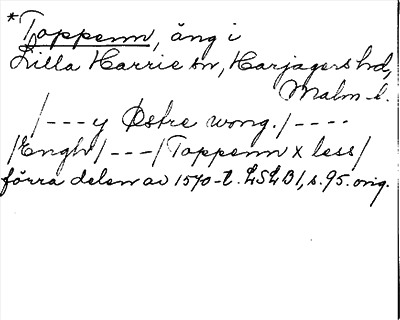 *Toppenn, äng i
Lilla Harrie sn, Harjagers hd,
Malm. l.
/---y Østre wong./----
/Engh/---/Toppenn x less/
förra delen av 1570-t. LSLB1, s. 95. orig.